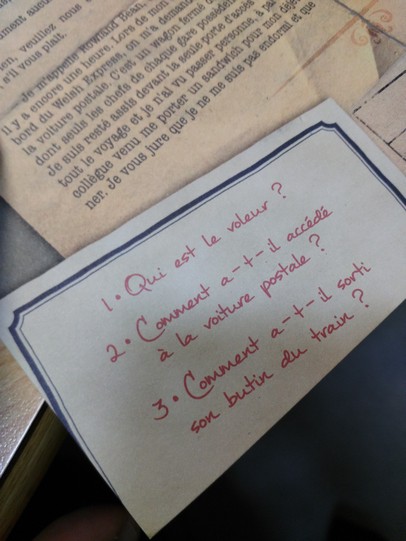 ament aucun
en, veuillez nous
s'il vous plait.
Je m'appelle Rowland Bean,
il y a encore une heure. Lors de mon
bord du Welsh Express, on m'a demandé
la voiture postale. C'est un wagon fermé
dont seuls les chefs de chaque gare possèdent
Je suis resté assis devant la seule porte d'accès
tout le voyage et je n'ai vu passer personne, à part
collègue venu me porter un sandwich pour mon déjeu-
ner. Je vous jure que je ne me suis pas endormi et que
1. Qui est le voleur ?
2. Comment a-t-il accédé
à la voiture postale ?
3. Comment a-t-il sorti
son butin du train ?